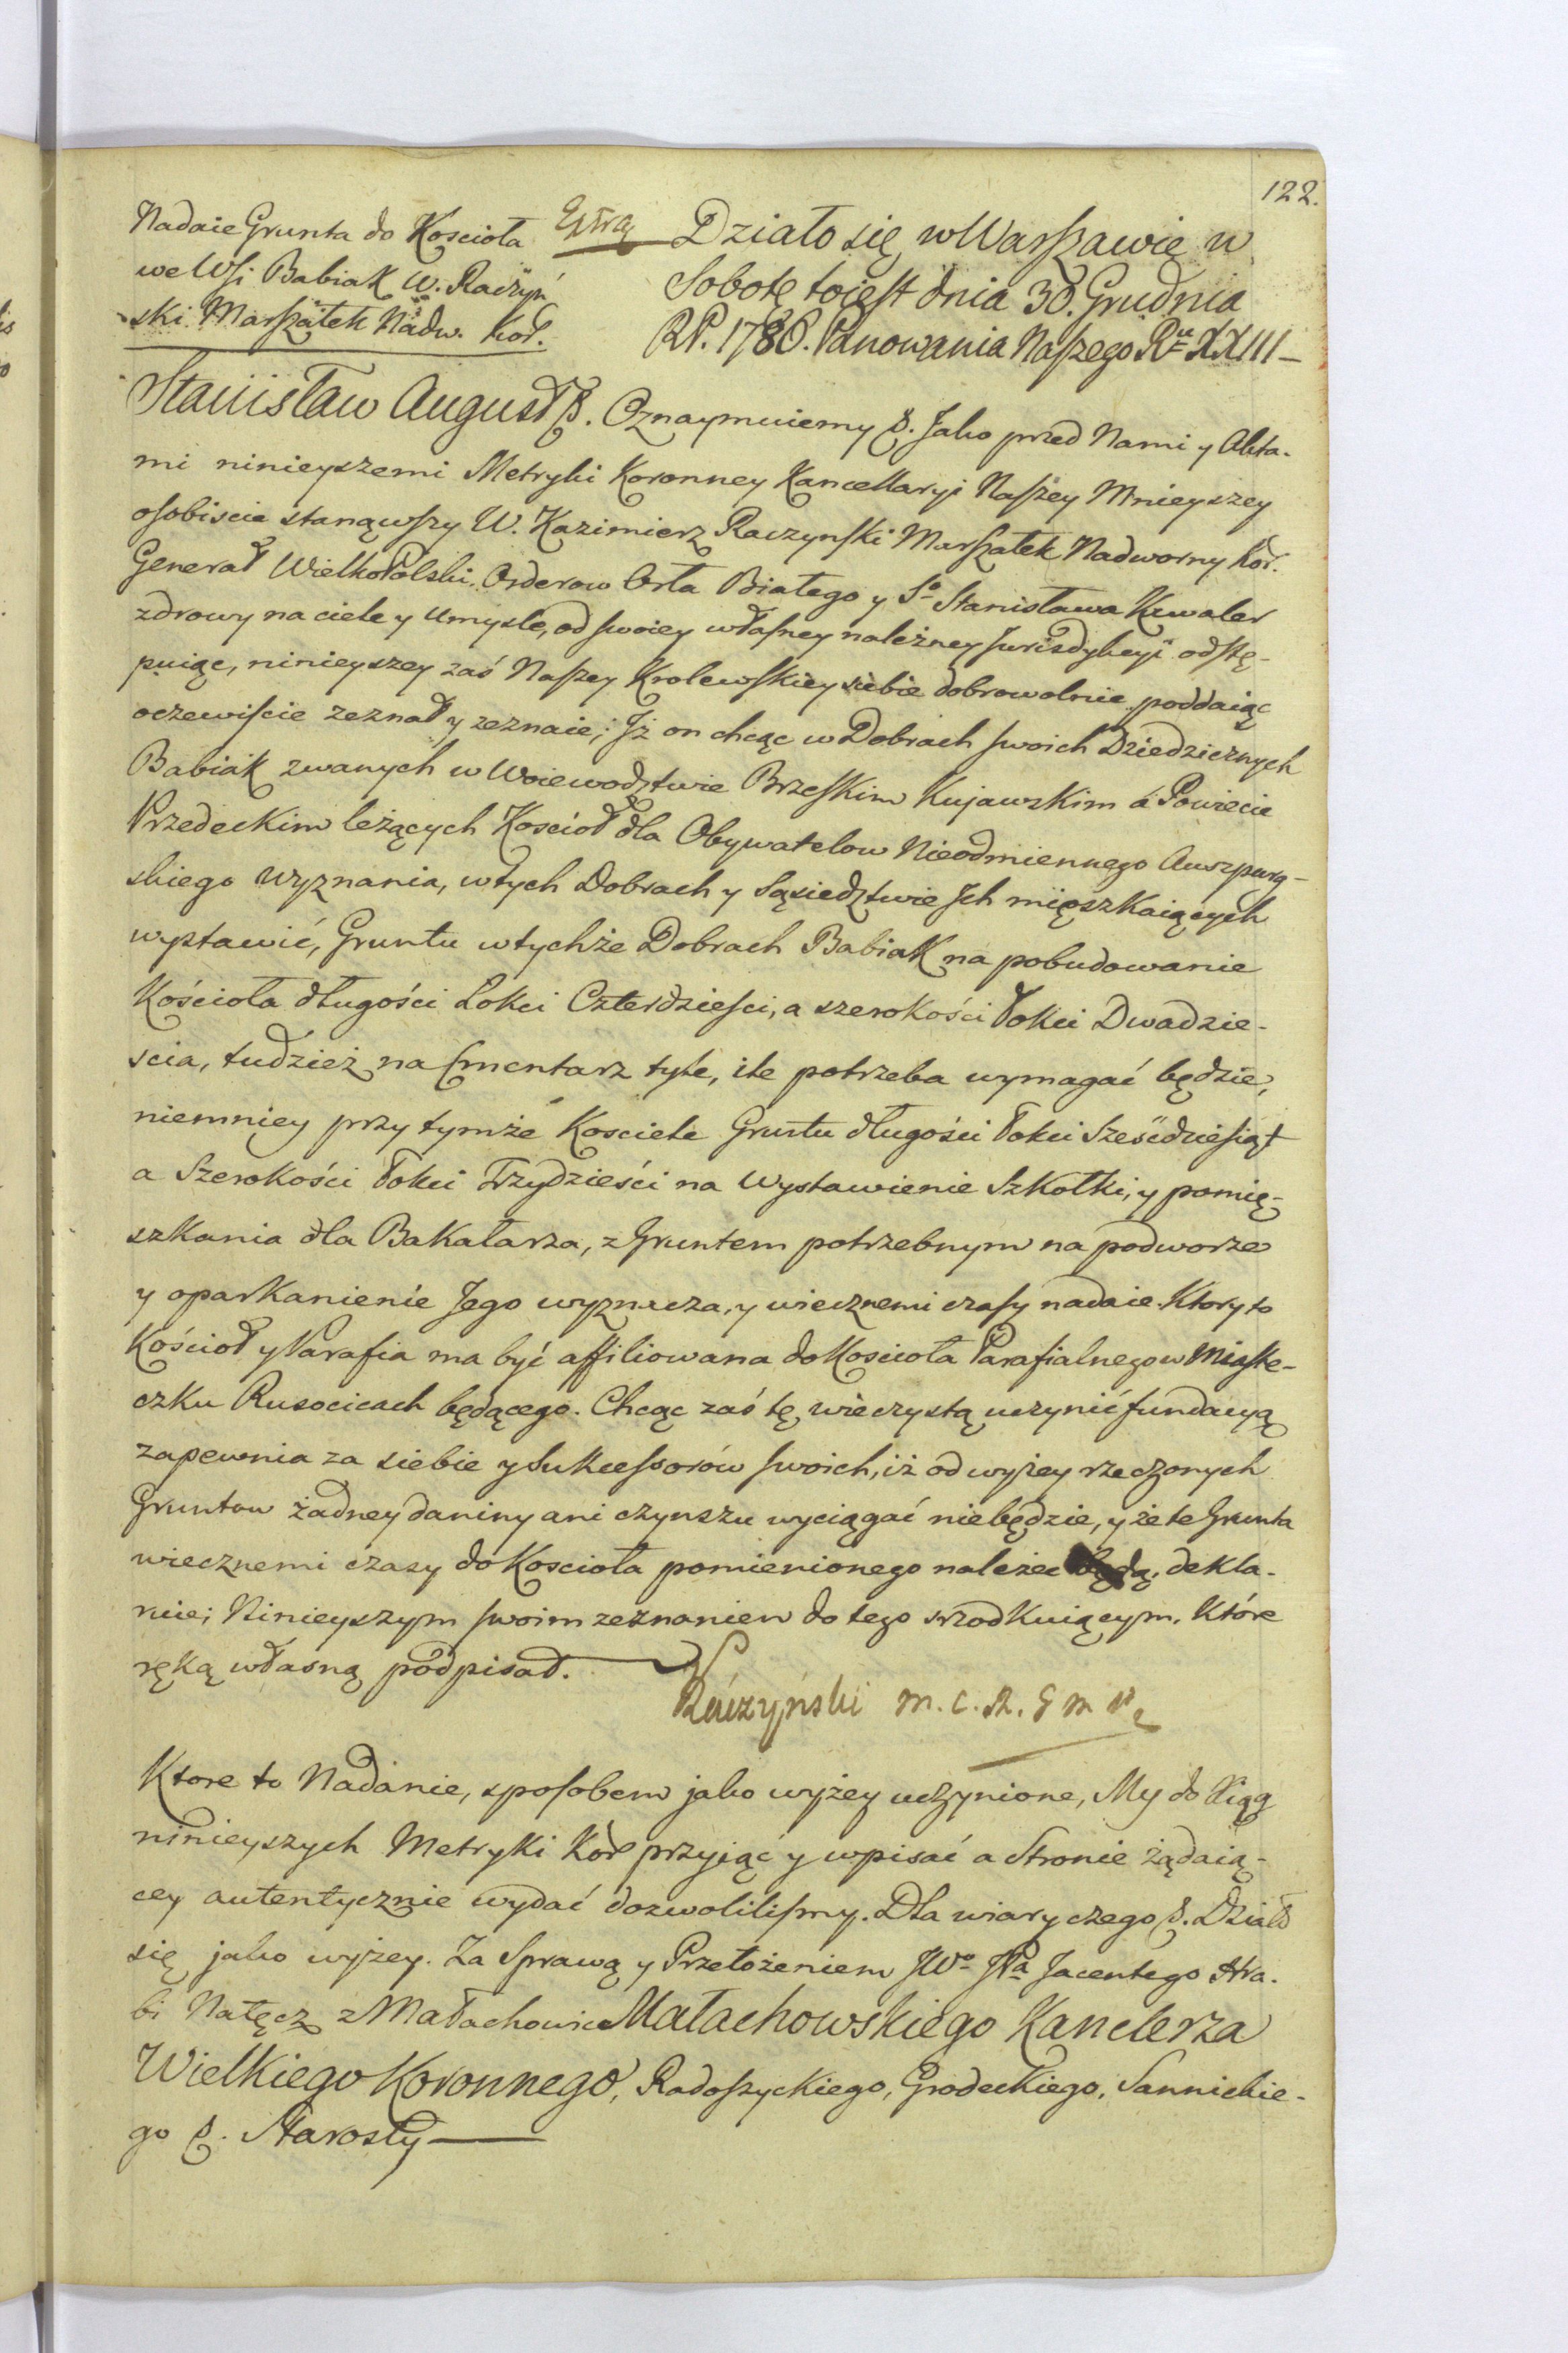 122.
Nadaie Grunta do Kościoła
we Wsi Babiak W. Raczyń
ski Marszałek Nadw. Kor.
Extra
Działo się w Warszawie w
Sobotę toiest dnia 30. Grudnia
RP. 1786. Panowania Naszego Ru XXIII
Stanisław August &. Oznaymuiemy &. Jako przed Nami y Akta-
mi ninieyszemi Metryki Koronney Kancellaryi Naszey Mnieyszey
osobiscie stanąwszy W. Kazimierz Raczynski Marszałek Nadworny Kor.
Generał WielkoPolski, Orderow Orła Białego y So Stanisława Kawaler
zdrowy na ciele y umysle, od swoiey własney należney Jurisdykcyi odstę-
puiąc, ninieyszey zaś Naszey Krolewskiey siebie dobrowolnie poddaiąc
oczewiscie zeznał y zeznaie; Jż on chcąc w Dobrach swoich Dziedzicznych
Babiak zwanych w Woiewodztwie Brzeskim Kujawskim a Powiecie
Przedeckim leżących Kościoł dla Obywatelow Nieodmiennego Auszpurg-
skiego wyznania, w tych Dobrach y Sąsiedztwie Jch mięszkaiących
wystawić, Gruntu w tychże Dobrach Babiak na pobudowanie
Kościoła długości Łokci Czterdziesci, a szerokości Łokci Dwadzie-
scia, tudzież na Cmentarz tyle, ile potrzeba wymagać będzie,
niemniey przy tymże Kosciele Gruntu długości Łokci Sześćdziesiąt
a Szerokości Łokci Trzydzieści na wystawienie Szkołki, y pomię-
szkania dla Bakałarza, z Gruntem potrzebnym na podworze
y oparkanienie Jego wyznacza, y wiecznemi czasy nadaie. Ktory to
Kościoł y Parafia ma być affiliowana do Kosciola Parafialnego w Miaste-
czku Rusocicach będącego. Chcąc zaś tę wieczystą uczynić fundacyą
zapewnia za siebie y Sukcessorów swoich, iż od wyżey rzeczonych
Gruntow żadney daniny ani czynszu wyciągać niebędzie, y że te Grunta
wiecznemi czasy do Kosciola pomienionego należec będą, dekla-
ruie; Ninieyszym swoim zeznaniem do tego srzodkuiącym. Które
ręką własną podpisał.
KRaczyński M. C. R. G M P
Ktore to Nadanie, sposobem jako wyżey uczynione, My do Xiąg
ninieyszych Metryki Kor przyjąć y wpisać a Stronie żądaią-
cey autentycznie wydać dozwolilismy. Dla wiary czego &. Działo
się jako wyżey. Za Sprawą y Przełożeniem JWo JPa Jacentego Hra-
bi Nałęcz z Małachowic Małachowskiego Kanclerza
Wielkiego Koronnego, Radoszyckiego, Grodeckiego, Sannickie-
go &. Starosty